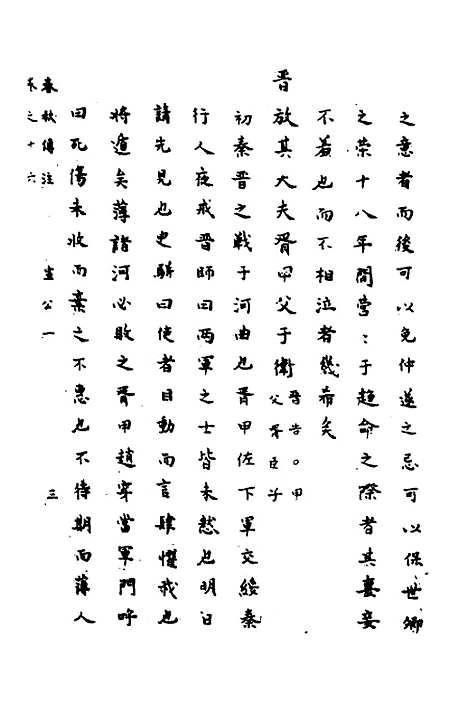 之意者而後可以免仲遂之忌可以保世卿
之荣十八年間营〻于趋命之際者其妻妾
不羞也而不相泣者幾希矣
晋放其大夫胥甲父于衛晋告。甲父胥臣子
初秦晋之戦于河曲也晋甲佐下軍交綏秦
行人夜戒晋師曰两軍之士皆未憖也明日
請先見也史駢曰使者目動而言肆懼我也
將遁矣薄諸河必敗之胥甲趙穿當軍門呼
曰死傷未收而棄之不惠也不待期而薄人
春秋傳注
卷之十六
宣公一
三